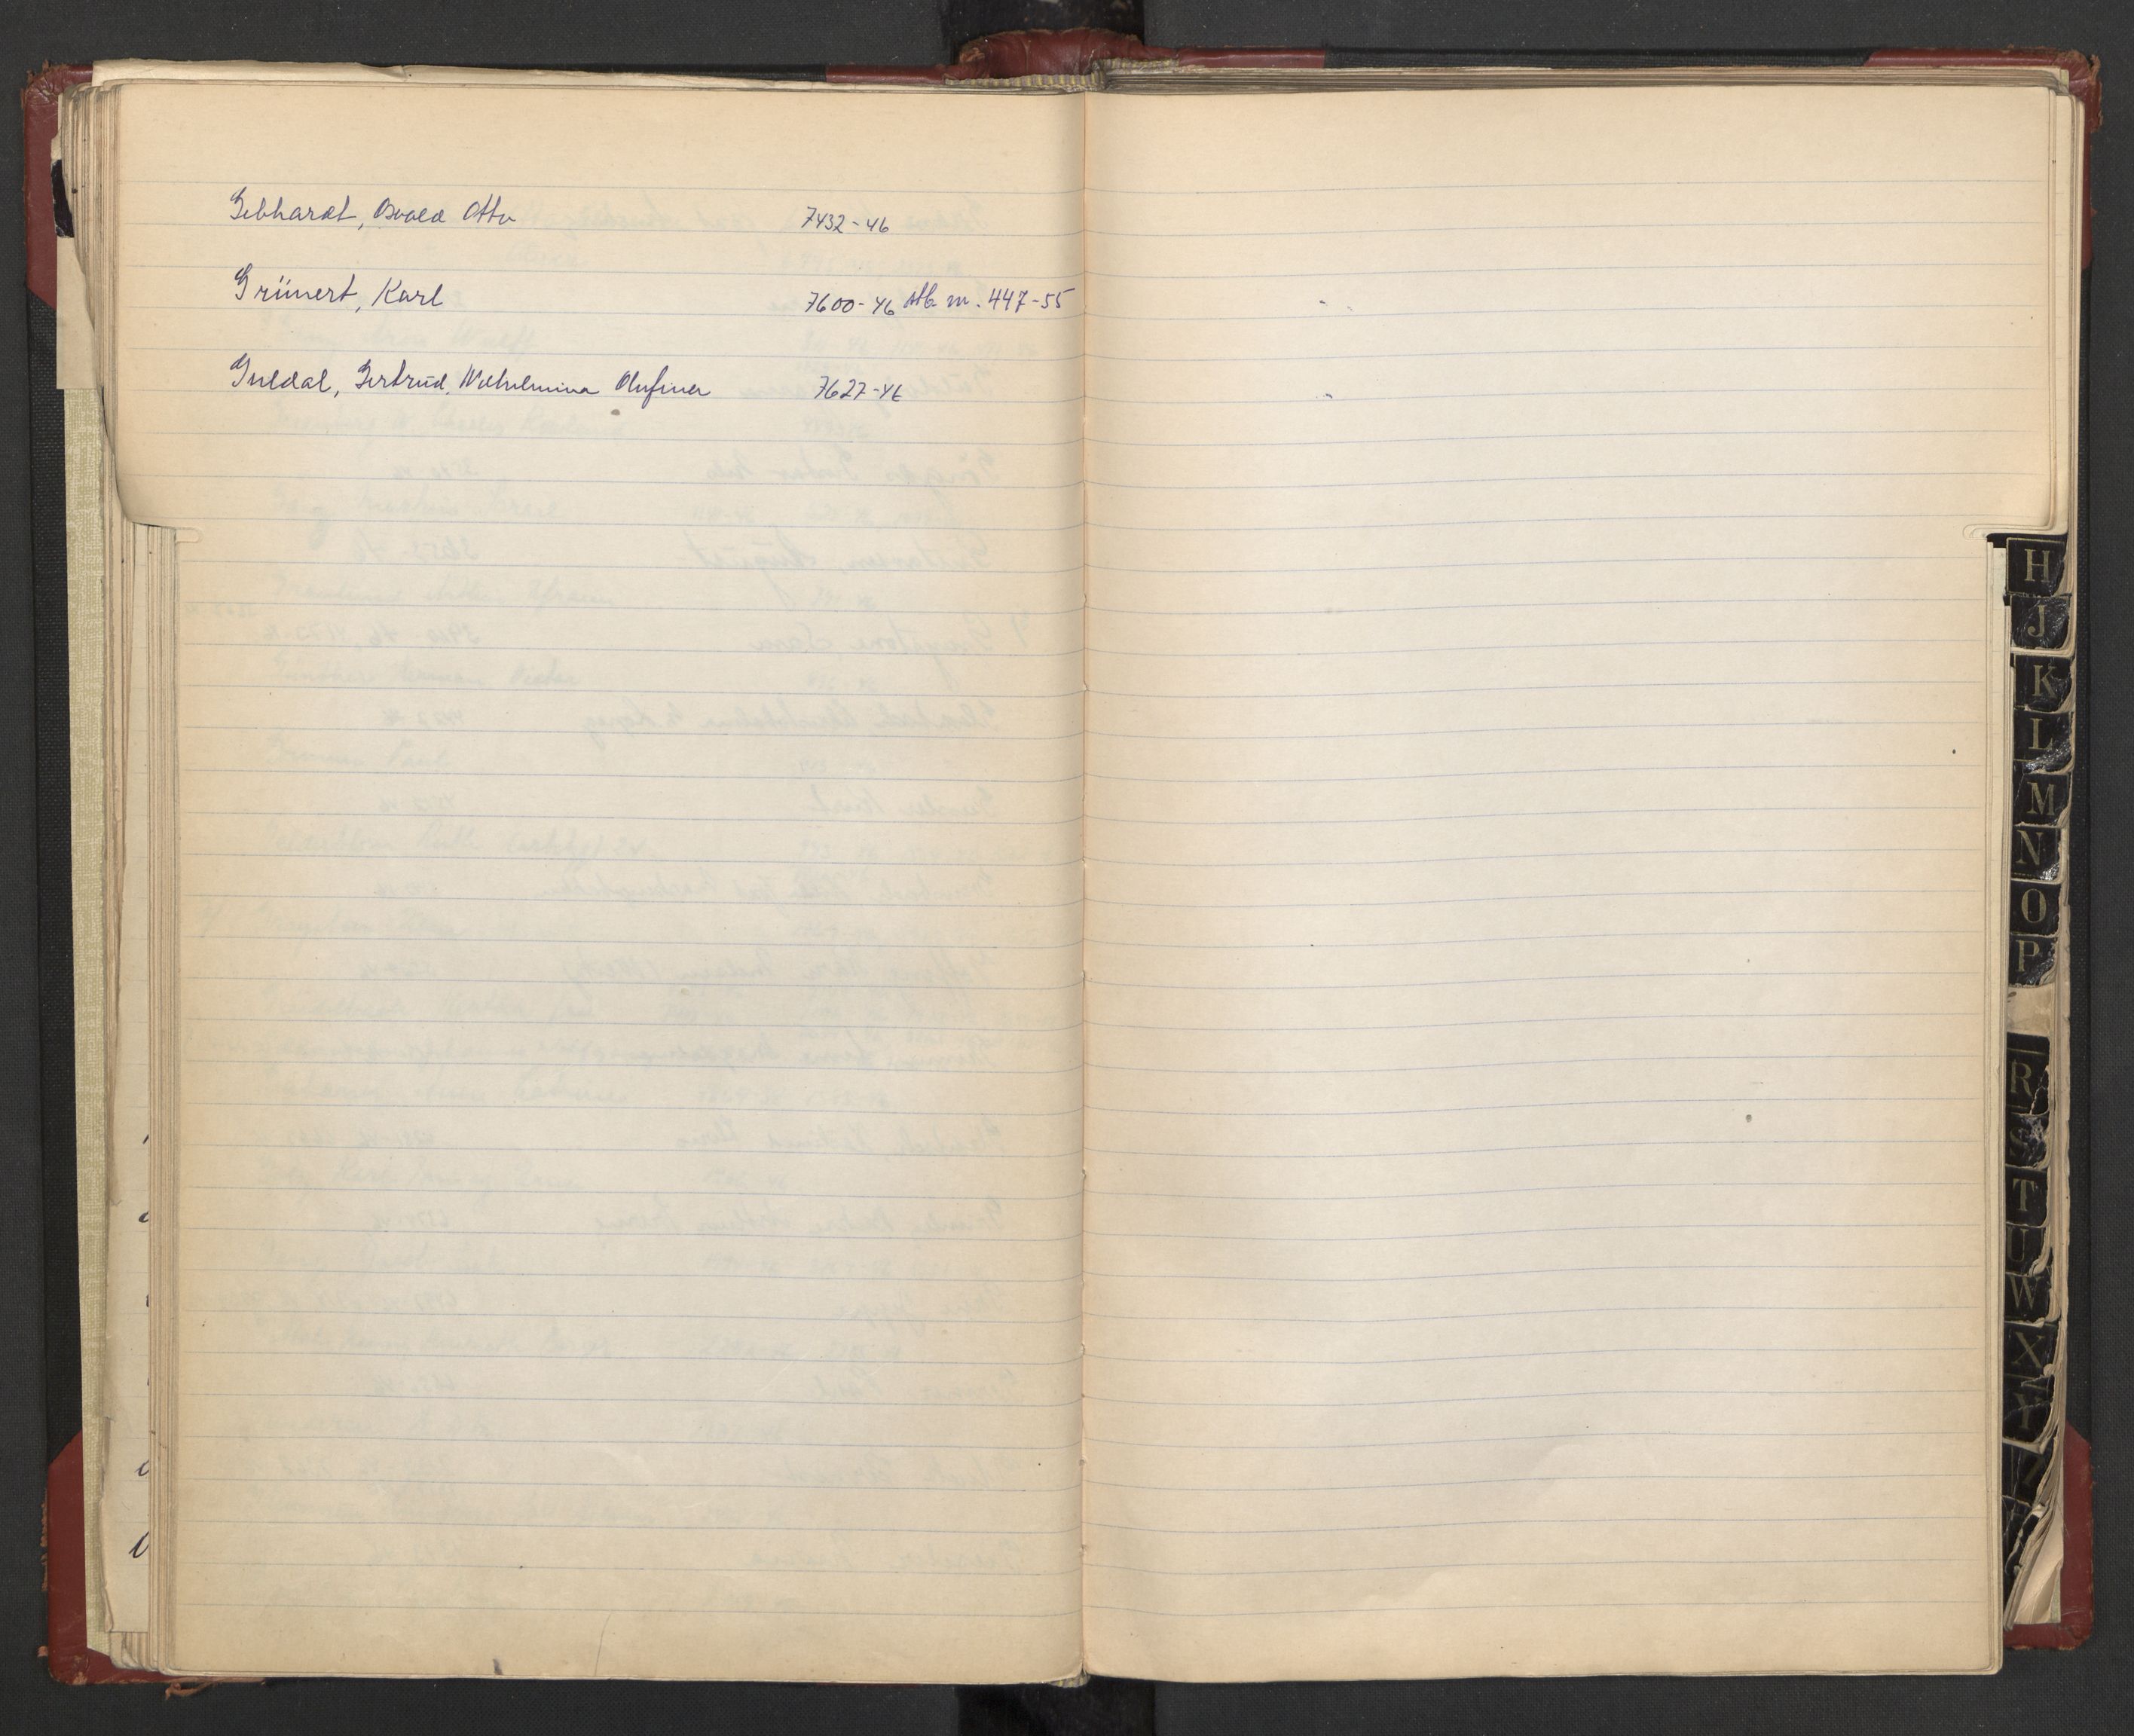 Gebhardt, Osvald Otto 7432-46
Grünert, Karl 7600-46 m. 447-55
Guldal, Gertrud, Wilhelmina Olufina 7627-46
H
J
K
L
M
N
O
P
R
S
T
U
W
X
Y